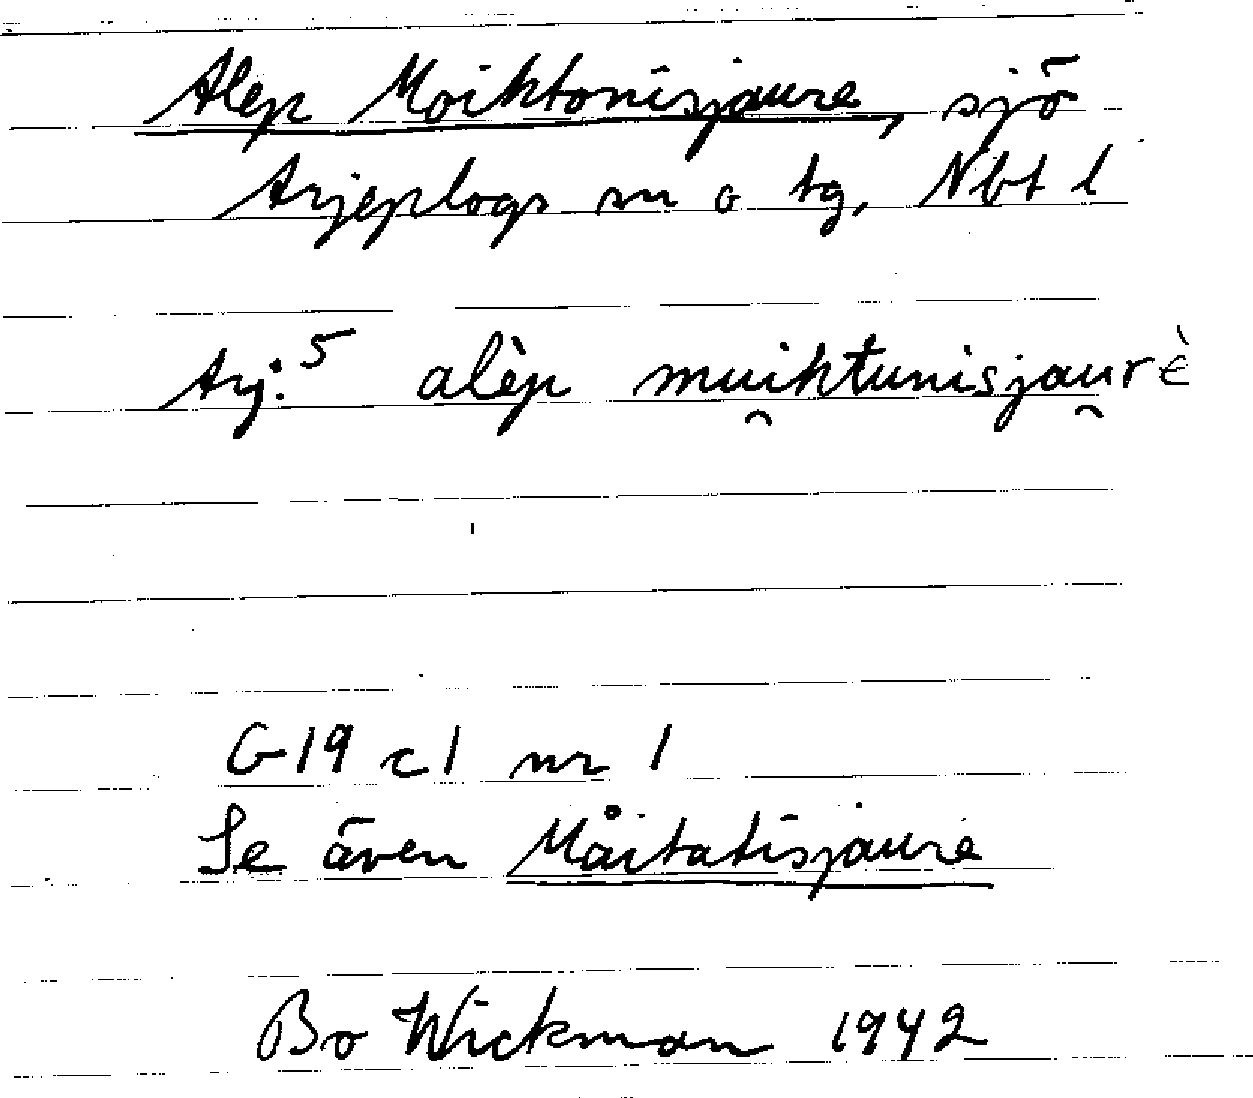 Alep Moiktonisjaure, sjö
Arjeplogs sn o tg, Nbt l
Arj:⁵ alèp mui̯ktunisjau̯rè
G19 c1 nr 1
Se även Måitatisjaure
Bo Wickman 1942